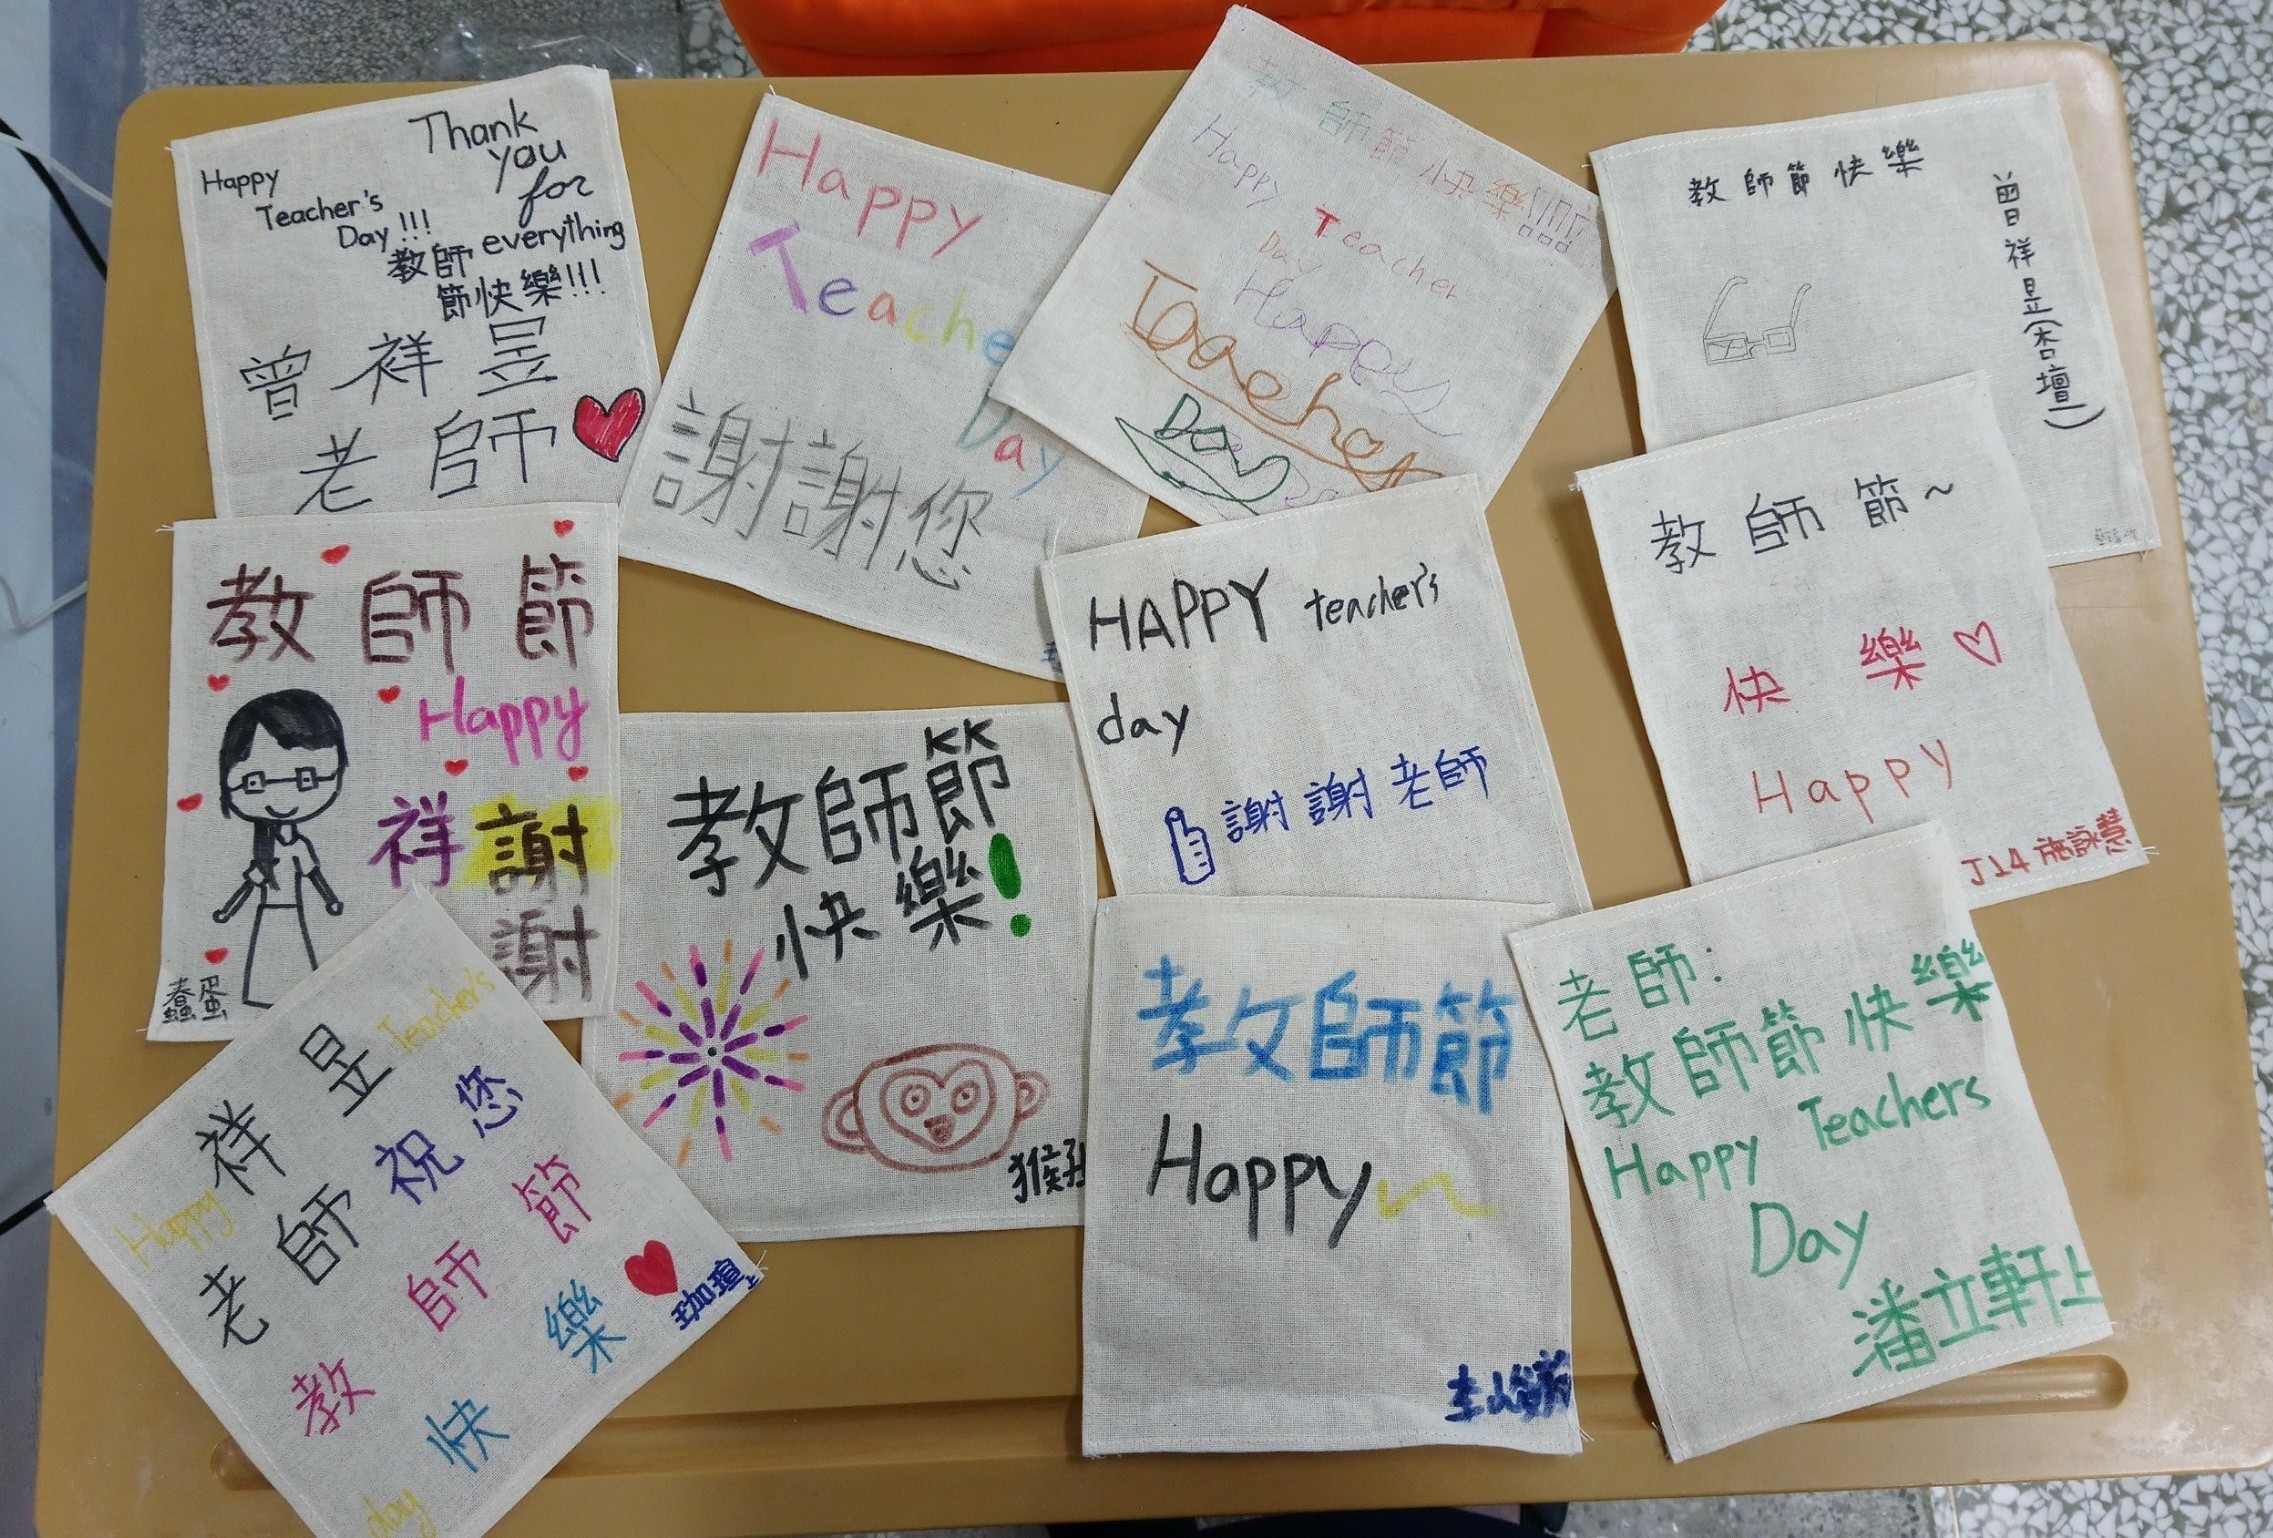 Thank
you
for
everything
Happy
Teacher's
Day!!!
教師
節快樂!!!
曾祥昱
老師
Happy
Teache
Day
謝謝您
教師節快樂!!!!
Happy Teacher
Day
Happy
Teacher
Day
教師節快樂
曾祥昱(杏壇)
教師節
Happy
祥
謝
謝
蠢蛋
教師節
快樂!
猴孫
HAPPY teacher's
day
謝謝老師
教師節~
快樂
Happy
J14 施詠慧
Happy Teacher's
day
祥昱
老師祝您
教師節
快樂
珈瑄上
教師節
Happy~
老師:
教師節快樂
Happy Teachers
Day
潘立軒上